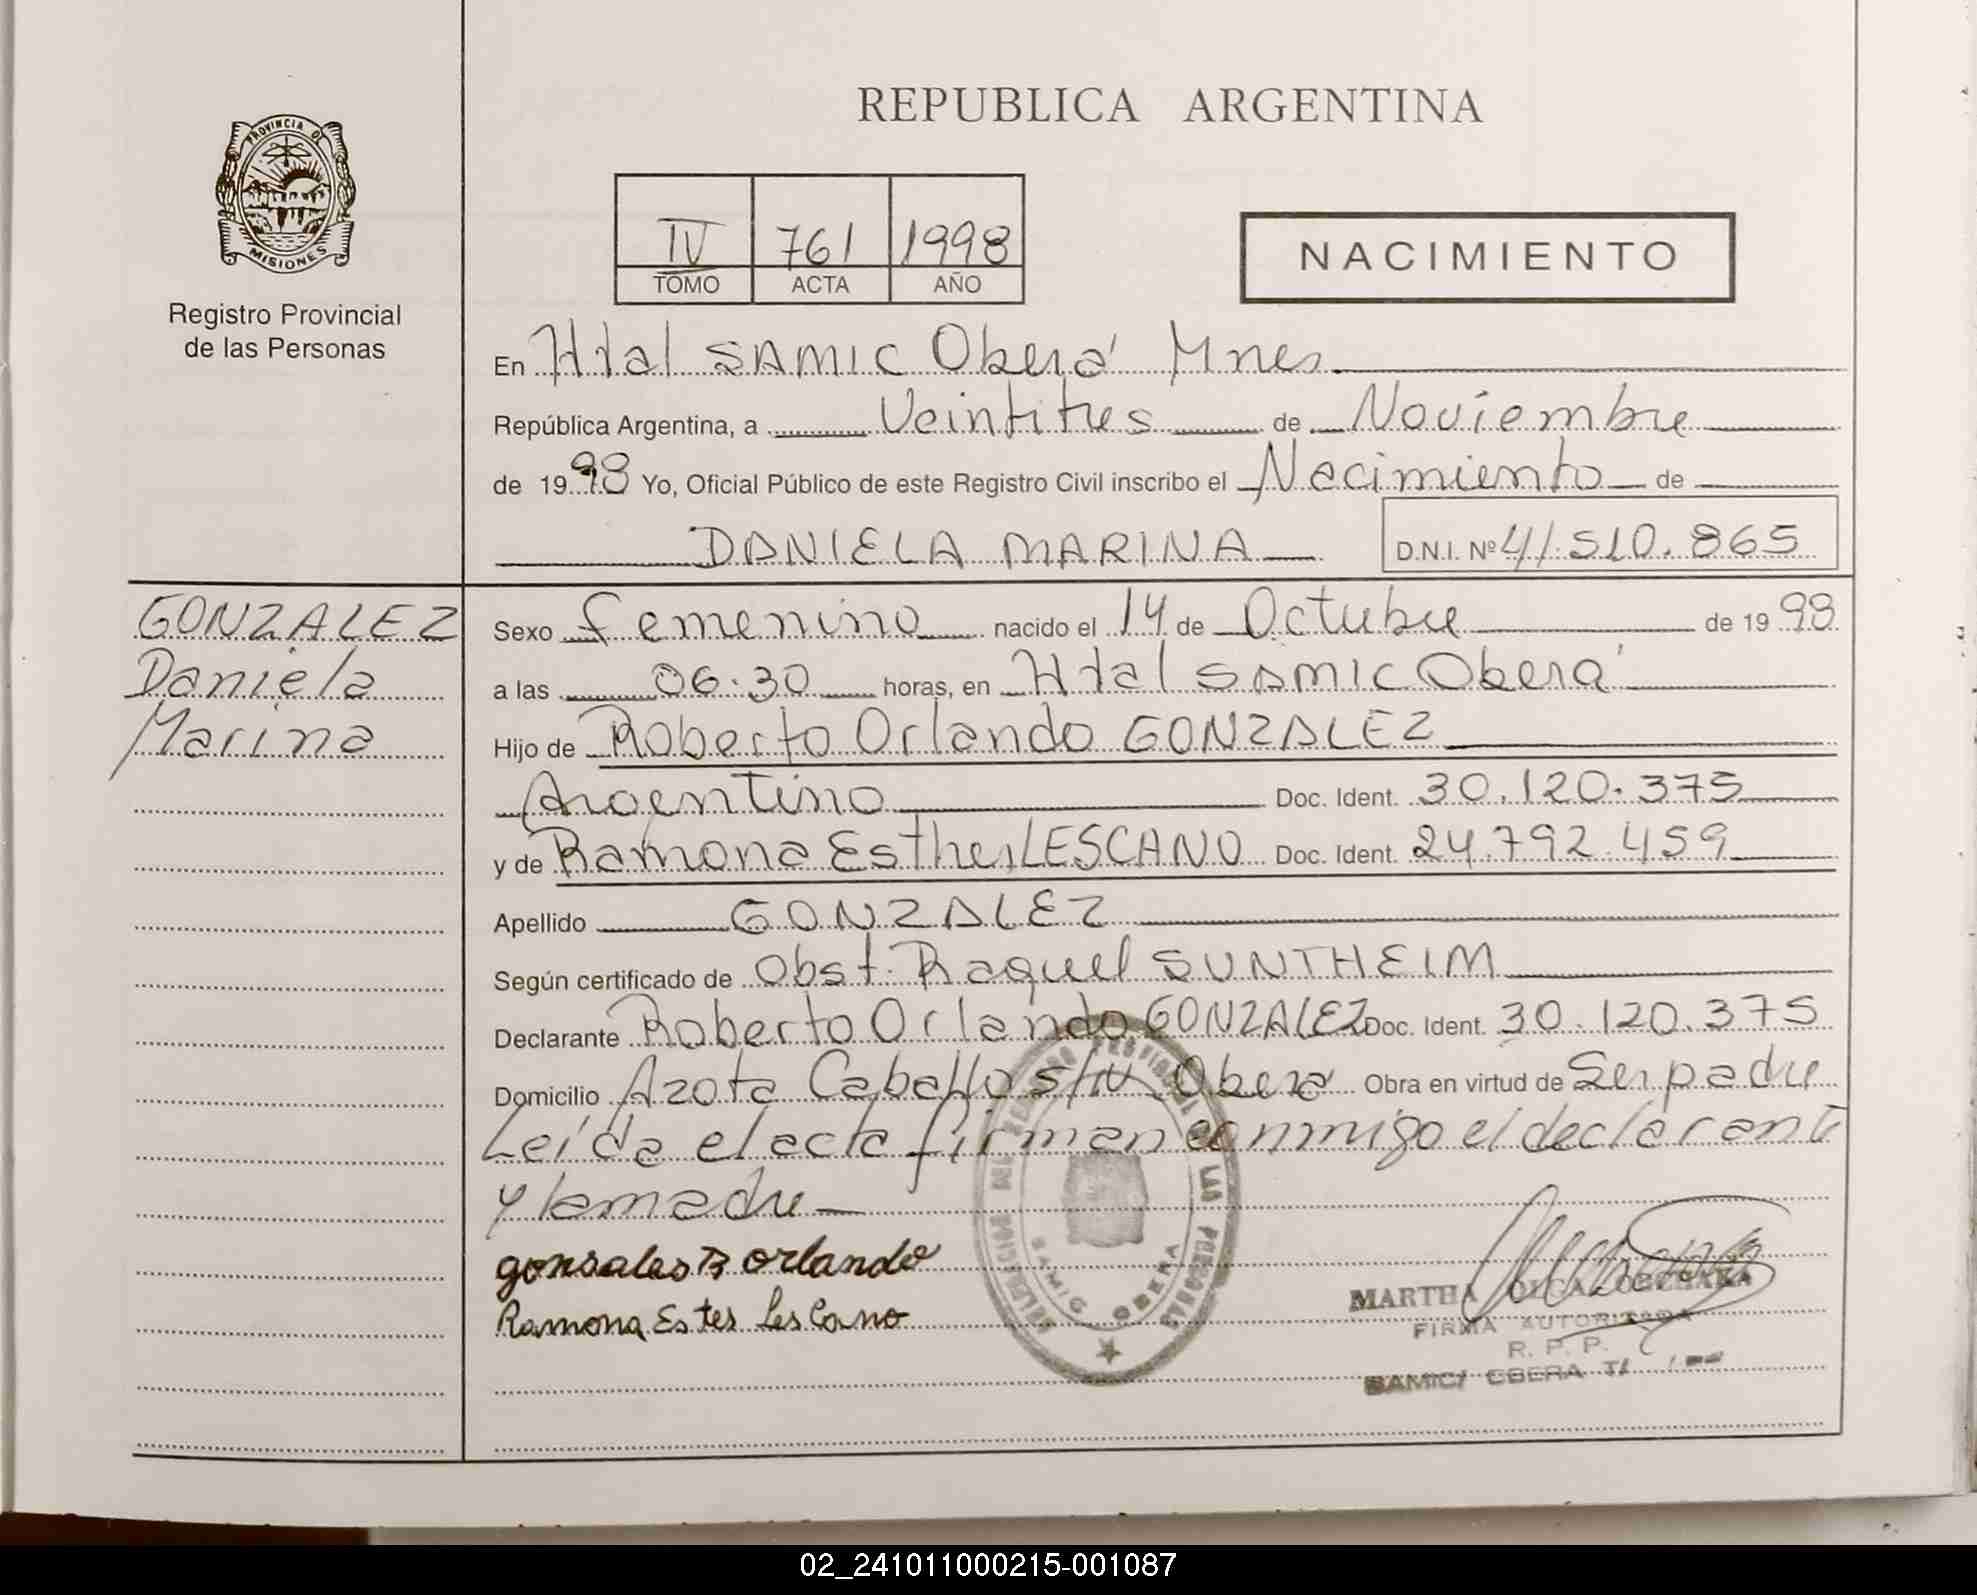 REPUBLICA ARGENTINA
PROVINCIA DE
MISIONES
Registro Provincial
de las Personas
IV 761 1998
TOMO ACTA AÑO
NACIMIENTO
En Htal SAMIC Oberá Mnes
República Argentina, a Veintitres de Noviembre
de 1998 Yo, Oficial Público de este Registro Civil inscribo el Nacimiento de
DANIELA MARINA D.N.I. Nº 41.510.865
GONZALEZ
Daniela
Marina
Sexo femenino nacido el 14 de Octubre de 1998
a las 06.30 horas, en Htal SAMIC Oberá
Hijo de Roberto Orlando GONZALEZ
Argentino Doc. Ident. 30.120.375
y de Ramona Esther LESCANO Doc. Ident. 24.792.459
Apellido GONZALEZ
Según certificado de Obst. Raquel SUNTHEIM
Declarante Roberto Orlando GONZALEZ Doc. Ident. 30.120.375
Domicilio Azota Caballo s/N Obera Obra en virtud de Ser padre
Leída el acta firman conmigo el declarante
y la madre
gonsales R orlando
Ramona Estes Lescano
DELEGACION DEL REGISTRO PROVINCIAL DE LAS PERSONAS
SAMIC OBERA
MARTHA OLGA
FIRMA AUTORIZADA
R. P. P.
SAMIC/ OBERA
02_241011000215-001087